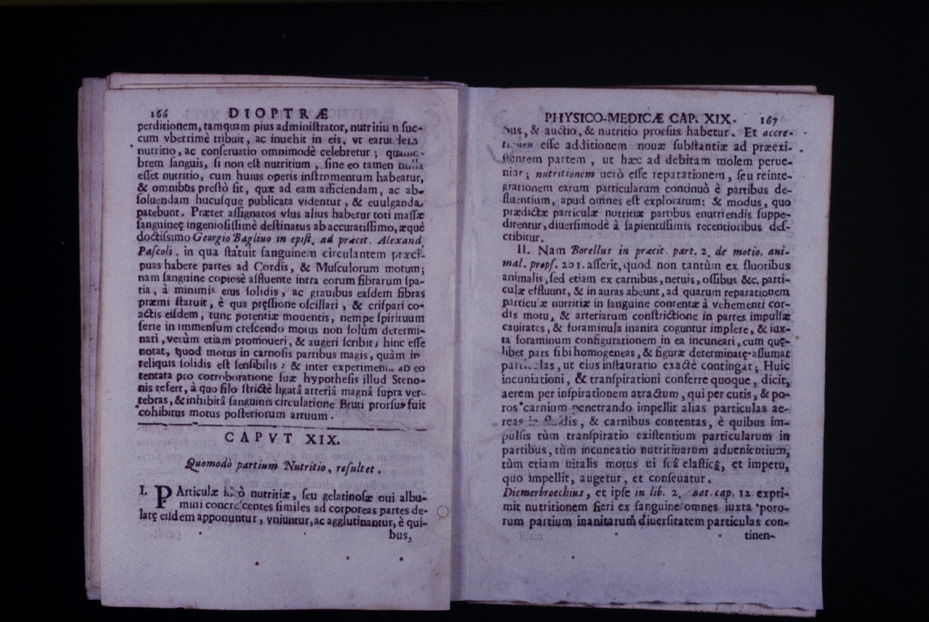 166 DIOPTRÆ
perditionem, tamquam pius administrator, nutritiu n suc-
cum vberrimè tribuit, ac inuehit in eis, vt earum
nutritio, ac conseruatio omnimodè celebretur;
brem sanguis, si non est nutritium, sine eo tamen nulla
esset nutritio, cum huius operis instromentum habeatur,
& omnibus prestò sit, quæ ad eam afficiendam, ac ab-
soluendam hucusque publicata videntur, & euulganda
patebunt. Præter assignatos vsus alius habetur toti massæ
sanguineę ingeniosissimè destinatus ab accuratissimo, æquè
doctissimo Georgio Bagliuo in epist. ad præcit. Alexand.
Pascoli. in qua statuit sanguinem circulantem præci-
puas habere partes ad Cordis, & Musculorum motum;
nam sanguine copiosè affluente intra eorum fibrarum spa-
tia, à minimis eius solidis, ac grauibus easdem fibras
præmi statuit, è qua pręssione oscillari, & crispari co-
actis eisdem, tunc potentiæ mouentis, nempe spirituum
ferie in immensum crescendo motus non solùm determi-
nari, verùm etiam promoueri, & augeri scribit; hinc esse
notat, quod motus in carnosis partibus magis, quàm in
reliquis solidis est sensibilis: & inter experimenta ab eo
tentata pro corroboratione suæ hypothesis illud Steno-
nis refert, à quo filo strictè ligatâ arteriâ magnâ supra ver-
tebras, & inhibitâ sanguinis circulatione Bruti prorsus fuit
cohibitus motus posteriorum artuum.
CAPVT XIX.
Quomodò partium Nutritio, resultet.
I. PArticulæ nutritiæ, seu gelatinosæ oui albu-
mini concrescentes similes ad corporeas partes de-
latę eisdem apponuntur, vniuntur, ac agglutinantur, è qui-
bus,
PHYSICO-MEDICÆ CAP. XIX. 167
bus, & auctio, & nutritio prorsus habetur. Et accre-
tionem esse additionem nouæ substantiæ ad præexi-
stentem partem, ut hæc ad debitam molem perue-
niar; nutritionem uerò esse reparationem, seu reinte-
grationem earum particularum continuò è partibus de-
fluentium, apud omnes est exploratum: & modus, quo
prædictæ particulæ nutritiæ partibus enutriendis suppe-
ditentur, diuersimodè à sapientissimis recentioribus des-
cribitur.
II. Nam Borellus in præcit. part. 2. de motio. ani-
mal. props. 201. asserit, quod non tantùm ex fluoribus
animalis, sed etiam ex carnibus, neruis, ossibus &c. parti-
culæ effluunt, & in auras abeunt, ad quarum reparationem
particulæ nutritiæ in sanguine contentæ à vehementi cor-
dis motu, & arteriarum constrictione in partes impulsæ
cauitates, & foraminula inanita coguntur implere, & iux-
ta foraminum configurationem in ea incuneari, cum quę-
libet pars sibi homogeneas, & figuræ determinatę assumat
particulas, ut eius instauratio exactè contingat; Huic
incuniationi, & transpirationi conferre quoque, dicit,
aerem per inspirationem atractum, qui per cutis, & po-
ros carnium penetrando impellit alias particulas ae-
reas in fluidis, & carnibus contentas, è quibus im-
pulsis tùm transpiratio existentium particularum in
partibus, tùm incuneatio nutritiuarum aduenientium,
tùm etiam uitalis motus ui suâ elasticâ, et impetu,
quo impellit, augetur, et conseuatur.
Diemerbroechius, et ipse in lib. 2. nat. cap. 12. expri-
mit nutritionem fieri ex sanguine omnes iuxta poro-
rum partium inanitarum diuersitatem particulas con-
tinen-